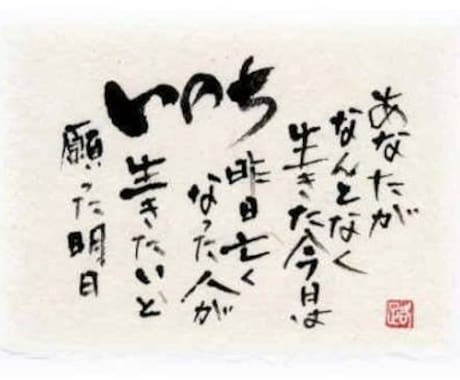 いのち
あなたが
なんとなく
生きた今日は
昨日亡く
なった人が
生きたいと
願った明日